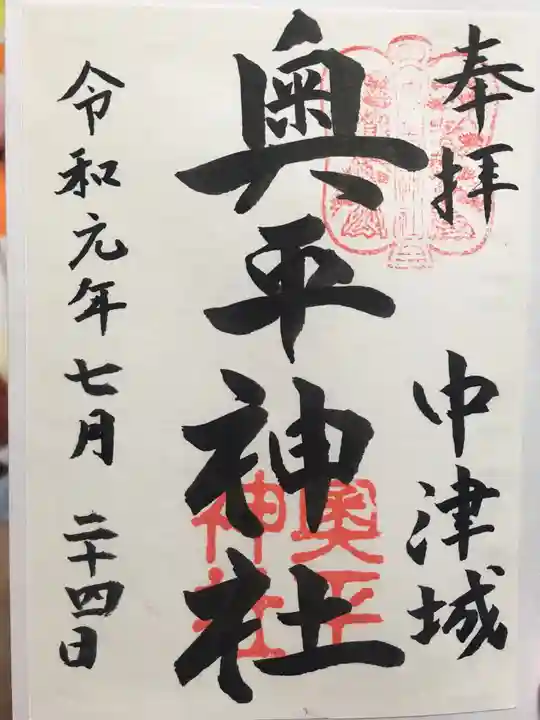 奉拝
中津城
奥平神社
奥平
神社
令和元年七月二十四日